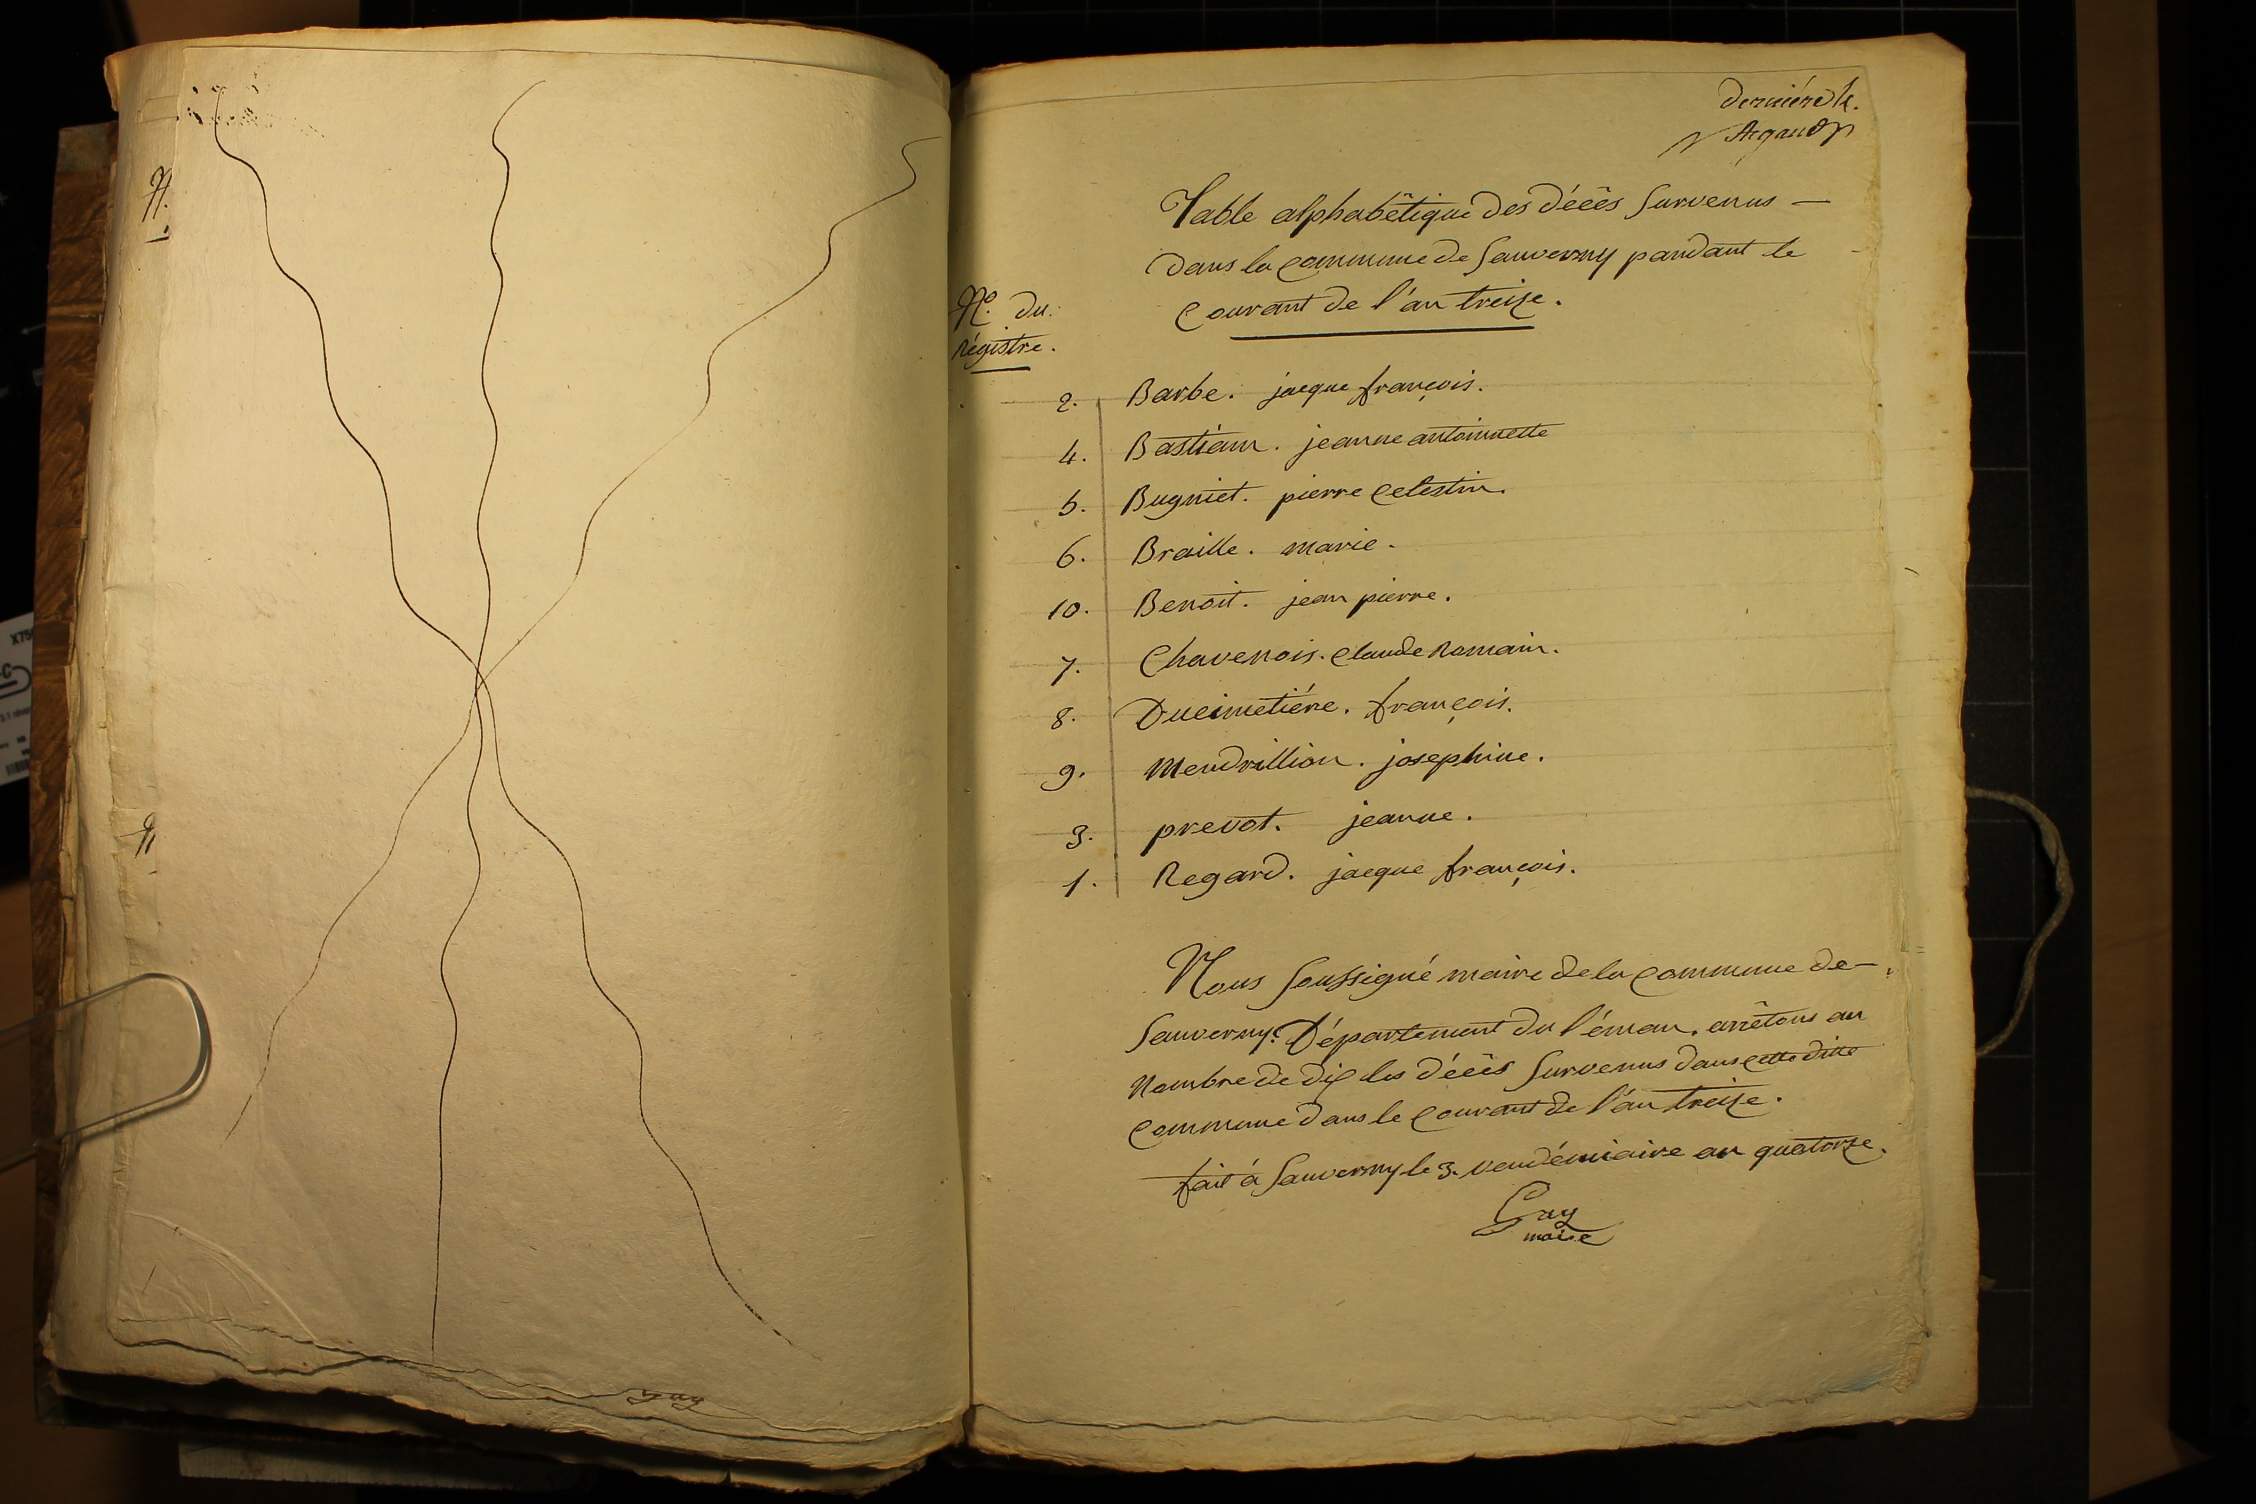 N.
N
Guy
dernière f.
Argand p
Table alphabêtique des décês Survenus —
dans la Commune de Sauverny pandant le
Courant de l'an treize.
N.º du
Régistre.
2. Barbe. jacque françois.
4. Bastiam. jeanne antoinnette
5. Bugniet. pierre Celestin.
6. Braille. marie.
10. Benoit. jean pierre.
7. Chavenois. Claude Romain.
8. Ducimetiére. françois.
9. Mendrillion. josephine.
3. prevot. jeanne.
1. Regard. jacque françois.
Nous Soussigné maire de la Commune de —
Sauverny. Département du Léman. arrêtons au
Nombre de dix les décês Survenus dans cette ditte
Commune dans le Courant de l'an treize.
fait à Sauverny le 3. vendémiaire an quatorze.
Guy
maire